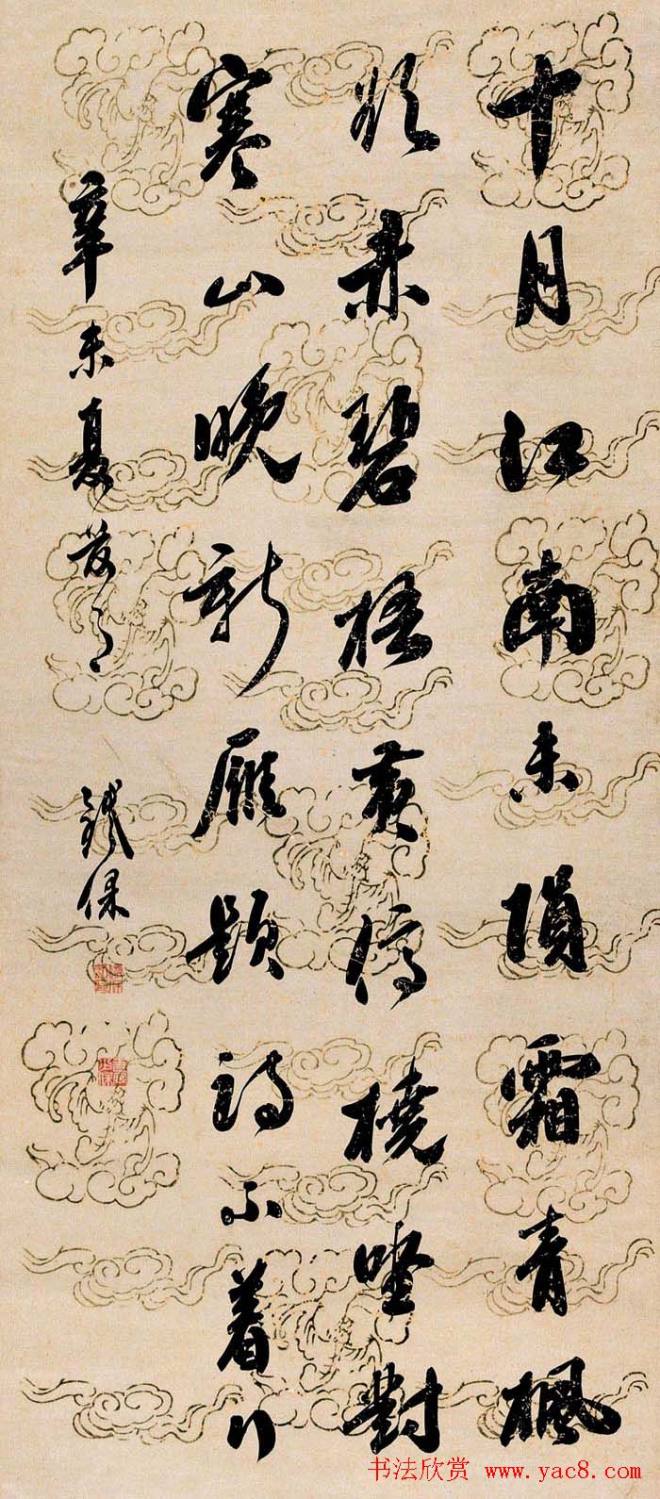 十月江南未隕霜青楓
欲赤碧梧黄停橈坐對
寒山晚新雁題詩不着行
辛未夏
鐵保
书法欣赏 www.yac8.com